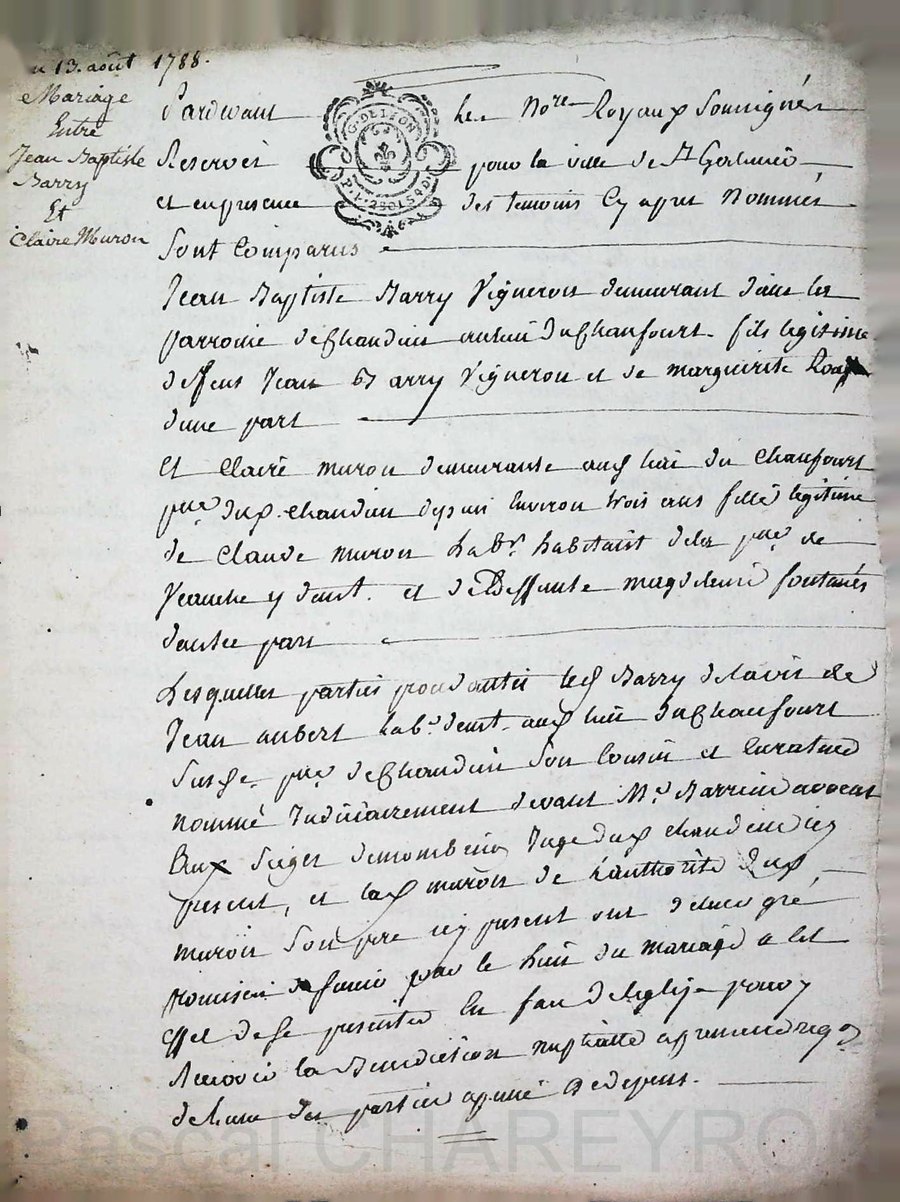 13. août 1788.
Mariage
Entre
Jean Baptiste
Barry
Et
Claire Muron
G. DE LYON
Pardevant les Nores Royaux Soussignés
Reservés pour la ville de St Galmier
et en presence des temoins Cy apres Nommés
Sont Comparus
Jean Baptiste Barry Vigneron demeurant dans la
parroisse de Chandieu au lieu du Chaufourt fils legitime
deffeus Jean Barry Vigneron et de marguerite
dune part
Et Claire muron demeurante aud lieu du Chaufourt
pse dud. chandieu depuis Environ trois ans fille legitime
de Claude muron Labr habitant de la pse de
Veauche y demt. et de Deffunte magdeleine fontanés
dautre part
Lesquelles parties proud autée led Barry de lavis de
Jean aubert Labr demt. aud lieu du Chaufourt
Susde pse de Chandieu Son Cousin et Curateur
nommé Judiciairement devant Me Barrieu avocat
Aux Sieges de montbrison Juge dud chandieu icy
present, et lad muron de L'authorité dud
muron Son pere icy present ont de leur gré
promis de Sunir par le lien du mariage a cet
effet de Se presenter En face deglise pour y
Recevoir la Benediction nuptialle a premiere reqon
de lune des parties a peine de depens.
Pascal CHAREYRON